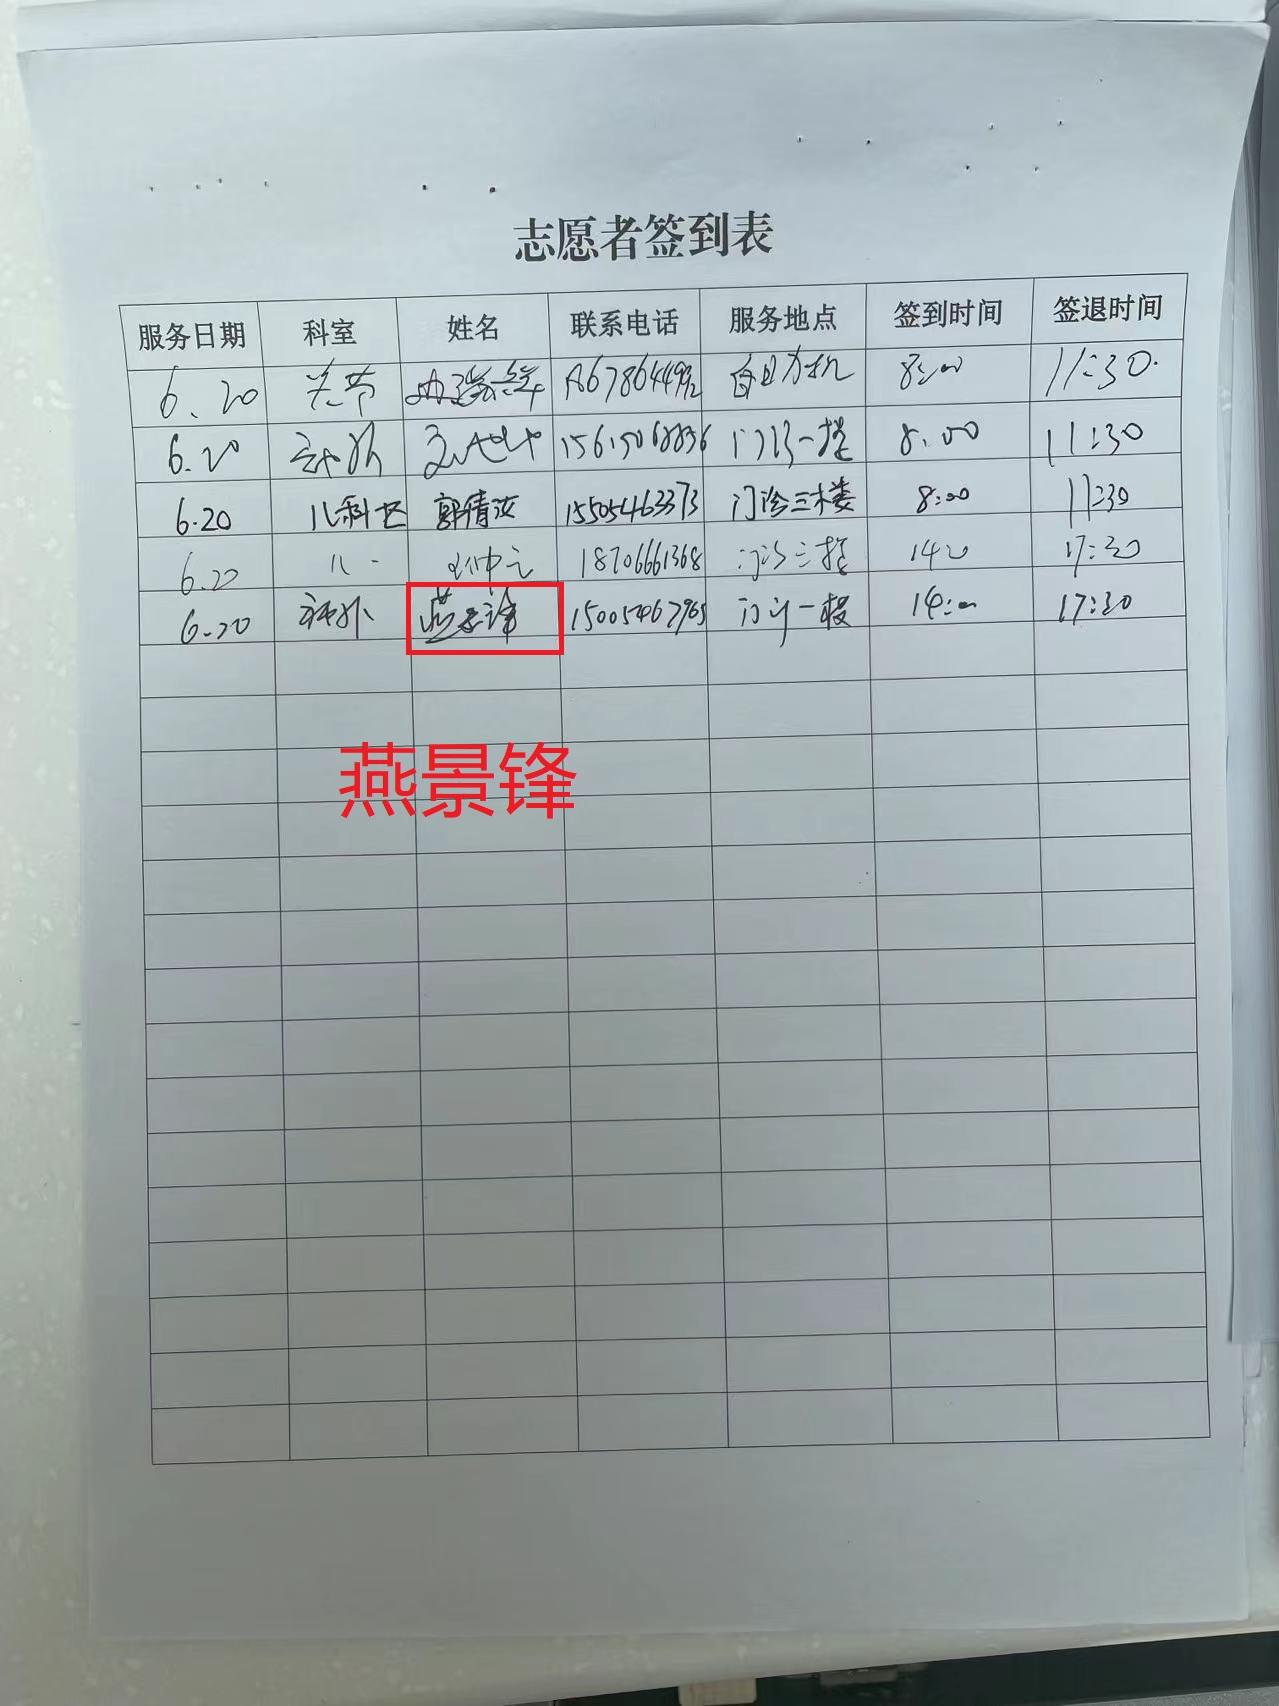 志愿者签到表
服务日期 科室 姓名 联系电话 服务地点 签到时间 签退时间
6.20 关节 自助机 8:00 11:30.
6.20 门诊一楼 8:00 11:30
6.20 儿科 郭倩汝 15505463373 门诊三楼 8:00 11:30
6.20 儿一 18706661368 门诊三楼 17:30
6.20 神外 燕景锋 门诊一楼 14:00 17:30
燕景锋